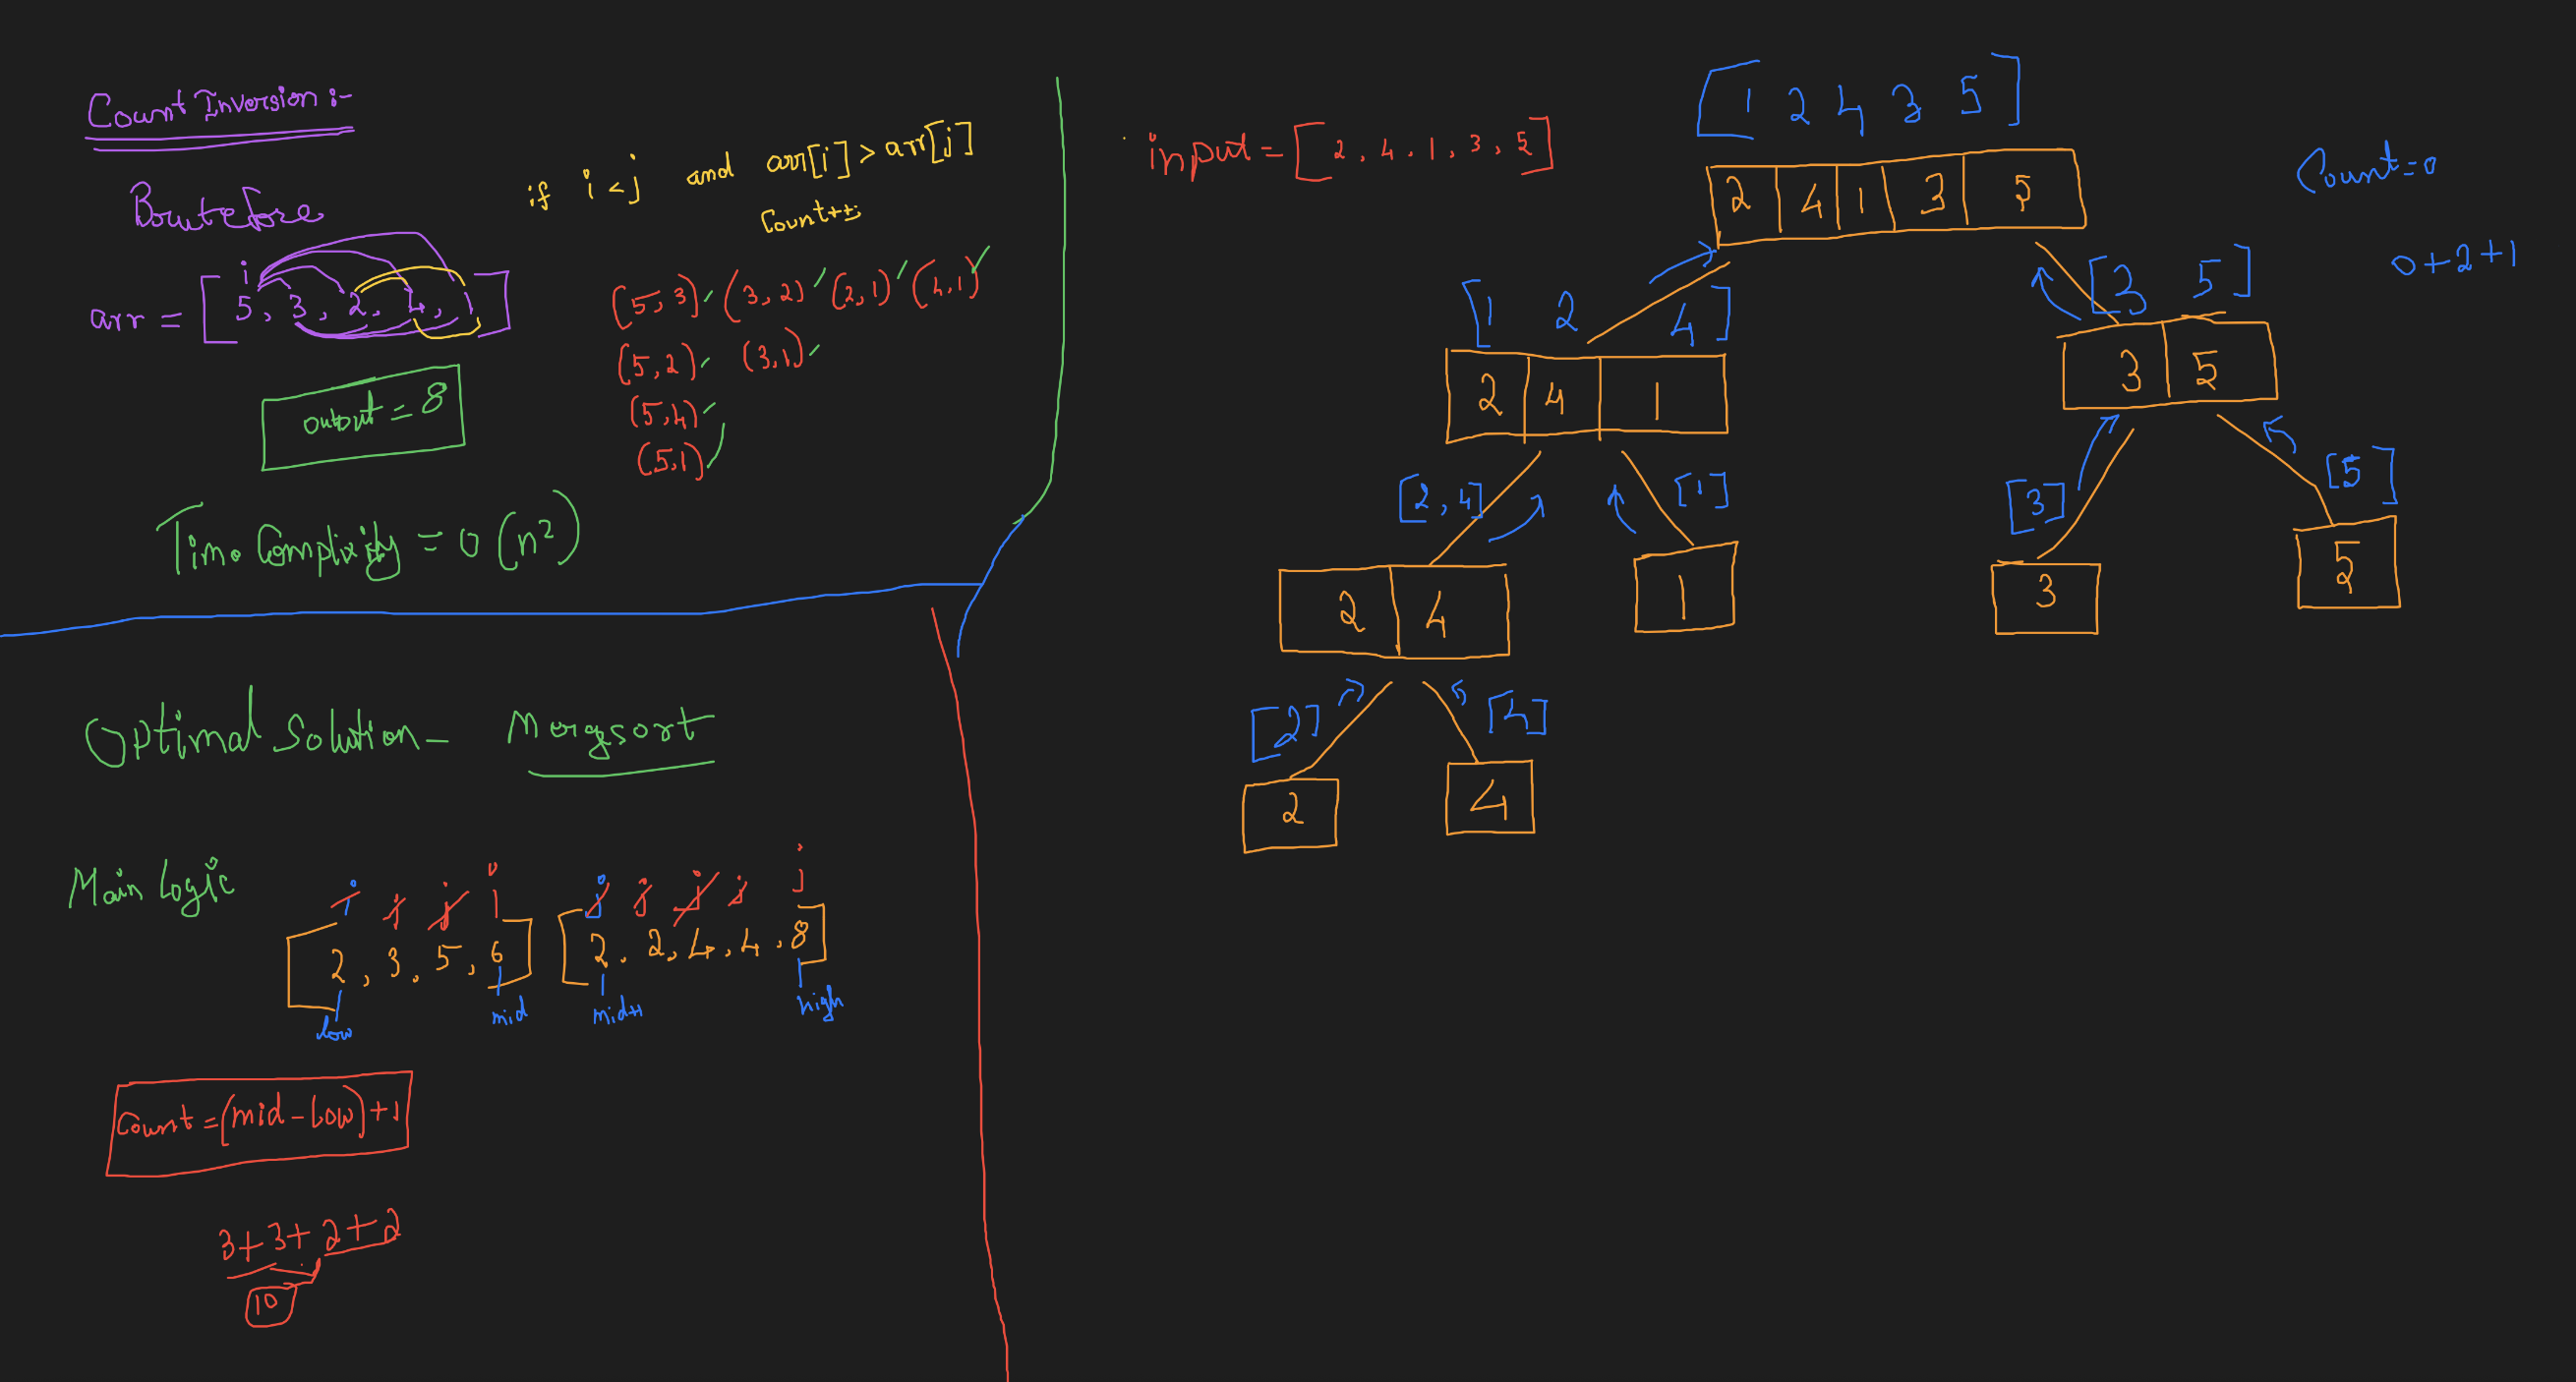 Count Inversion :-
Brutefore
if i < j and arr[i] > arr[j]
Count++;
i
arr = [5, 3, 2, 4, 1]
(5,3) ✓ (3,2) ✓ (2,1) ✓ (4,1) ✓
(5,2) ✓ (3,1) ✓
(5,4) ✓
(5,1) ✓
output = 8
Time Complixity = O(n²)
Optimal Solution - Mergsort
Main Logic
i i i i j j j j j
[2, 3, 5, 6] [2, 2, 4, 4, 8]
low mid mid+1 high
Count = (mid - low) + 1
3+3+2+2
10
input = [2, 4, 1, 3, 5]
[1 2 4 3 5]
2 4 1 3 5
Count = 0
0+2+1
[1 2 4] [3 5]
2 4 1 3 5
[2, 4] [1] [3] [5]
2 4 1 3 5
[2] [4]
2 4